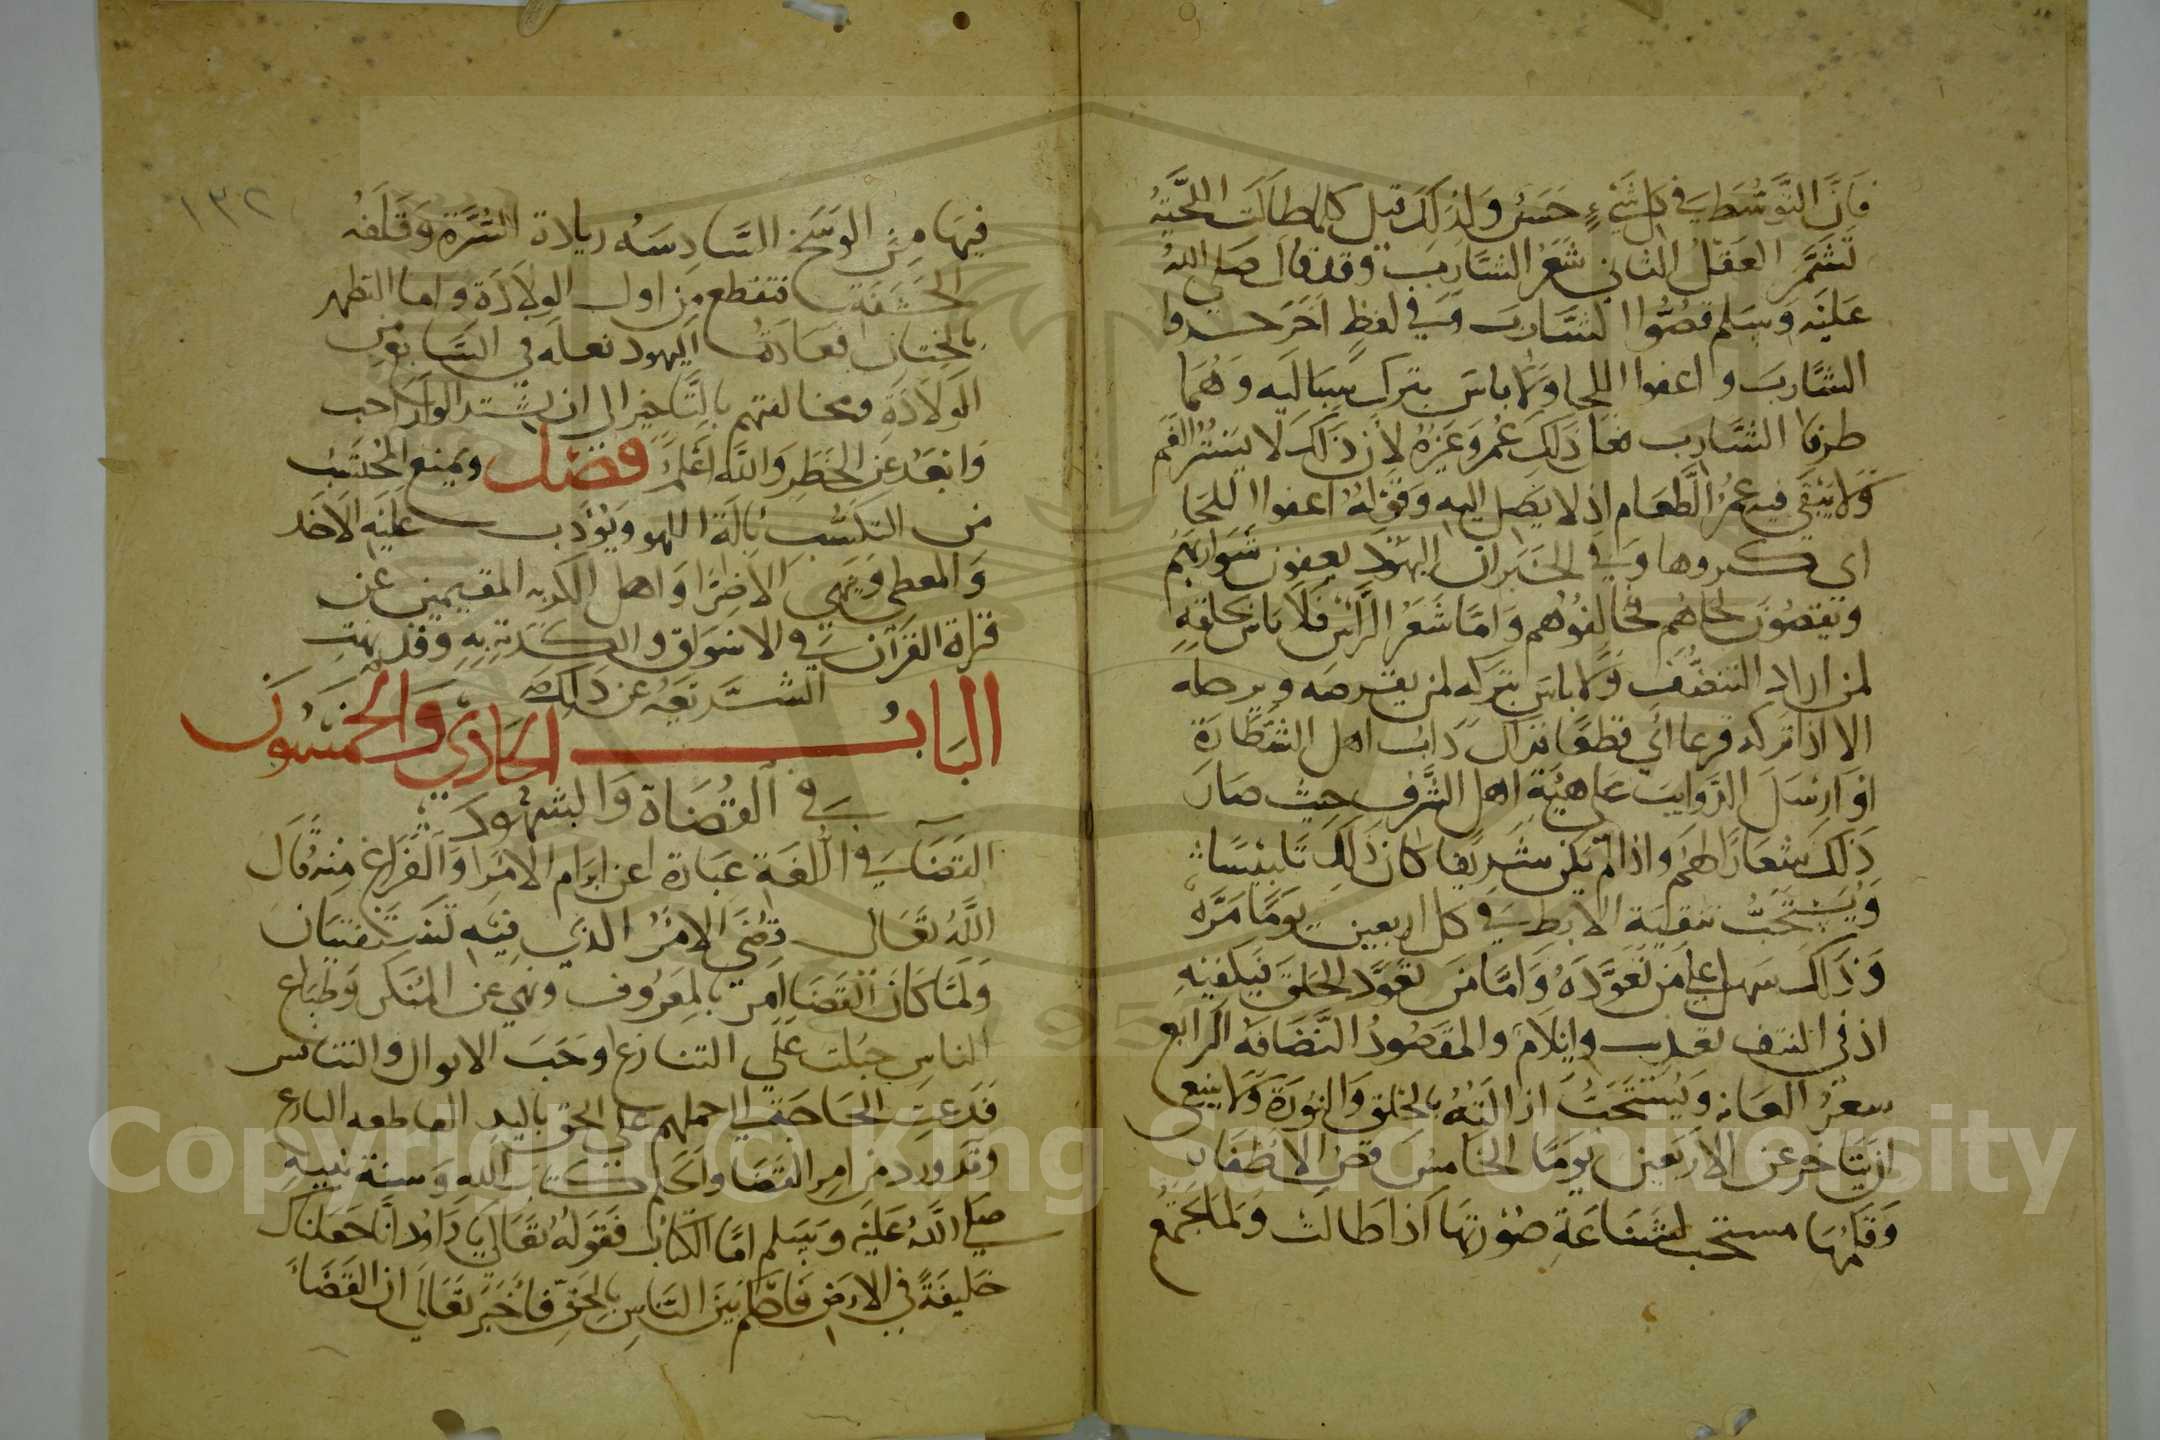 فَانَّ التَّوَسُّطَ فِي كل شَيْءٍ حَسَنٌ وَلِذَلِكَ قيل كلما طَالَت اللحْيَة
تَشَمَّرَ العَقْلُ الثاني شَعَرُ الشَّارِبِ وقد قال صَلي اللهُ
عَلَيْهِ وَسَلم قصُّوا الشَّارِبَ وَفِي لفظٍ اخَر
الشَّارِبَ واعفوا اللحا وَلَا باسَ بترك سِبَالَيه وَهُمَا
طرفا الشَّارِب فعَل ذَلِكَ عُمر وَغَيْرهُ لأن ذَلِكَ لا يَسْتُرُ الفَم
وَلَا يَبْقَي فيه غمرُ الطَعَام اذ لا يَصِل اليه وَقَوْلهُ اعفوا اللحَا
اي كثروها وَفِي الخَبَر ان اليَهُودَ يعفون شَوَارِبَهُم
وَيقصُّونَ لحاهُم فخالِفُوهُم وَامَّا شَعَرُ الرَّأْسِ فَلَا بَاس بحَلقهِ
لمن اراد التنَظُّفَ وَلا باسَ بتركه لمن
الا اذا تركه قزعا اي قطعًا دَاب اهل الشطَارَة
اوَ ارْسَلَ الذَّوايبَ عَلي هَيْئَةِ اهل الشَّرَفِ حيث صَارَ
ذَلِكَ شعَارًا لهُم وَاذا لم يَكن شَرِيفا كانَ ذَلِكَ تَلبيسًا
وَيُسْتَحَبُّ تنقية الابط فِي كل اربعين يومًا مَرَّة
وَذَلِكَ سهل علي من تَعَوَّدَهُ وَامَّا مَن تعَوَّد الحَلقَ فَيَكفيهِ
اذ في النتف تعذيب وايلامٌ وَالمقصُودُ النَّضَافَهُ الرابع
شعرُ العانه وَيُسْتَحَبُّ ازَالتهُ بالحَلقِ وَالنورَةِ وَلَا ينبغي
ان يَتاخر عن الاربَعين يومًا الخامِسُ قصُ الاظفَار
وَقَلمُهَا مستحب لشَنَاعَةِ صُوْرتِهَا اذا طالَتْ وَلما يجتمعُ
١٣٢
فيهَا من الوسَخ السَّادِسَه زيادة السُّرَّةِ وَقلفَه
الحَشَفَة فتقطع مِن اول الوِلادَةِ واما التطهر
بالخِتان فعَادَة اليهود فعله في السَّابع مِن
الولَادَةِ ومخالفتهم بالتَّاخير الي ان يشتد الولد احب
وَابعَدُ عن الخَطَر وَاللَّه اعْلَمُ فصْل وَيمنع المُحْتَسِبُ
مِن التكَسُّبِ بآلَةِ اللهو وَيُؤدب عليْهِ الاخذ
وَالمعطي وَيَنْهي الاضِرّا وَاهل الكديه المقيمين عن
قراة القرْآن فِي الاسوَاق والكديَة بِهِ وَقد نهتِ
الشريعَة عن ذَلِكَ
البَابُ الحَادِي وَالخمسُونَ
فِي القضَاة وَالشهُود
القضَا فِي اللُّغَة عِبَارَة عن ابرام الامر وَالفَرَاغ مِنه قَال
اللَّهُ تعَالَي قُضيَ الامْرُ الذِي فِيهِ تَسْتَفتِيَان
وَلَمَّا كَانَ القضَا امْر بالمعرُوف ونهي عن المنكر وَطِبَاع
الناسِ جُبلت عَلَي التنازع وَحَبَ الاموال والتنافس
فَدَعت الحَاجَة الي حملهم عَلي الحق باليدِ القاطعه
وَقَد وَرد من امر القضَا وَالحَكم كتاب الله وَسنة نبيهِ
صَلي اللهُ عَلَيْهِ وَسَلم امَّا الكتابُ فقولهُ تَعَالَي يَا دَاوُد انَّا جَعَلنَاك
خليفَةً في الارض فَاحْكُم بَيْنَ النَّاسِ بِالحَقِّ فَاخْبَرَ تَعَالَي ان القَضَا
Copyright © King Saud University
1957